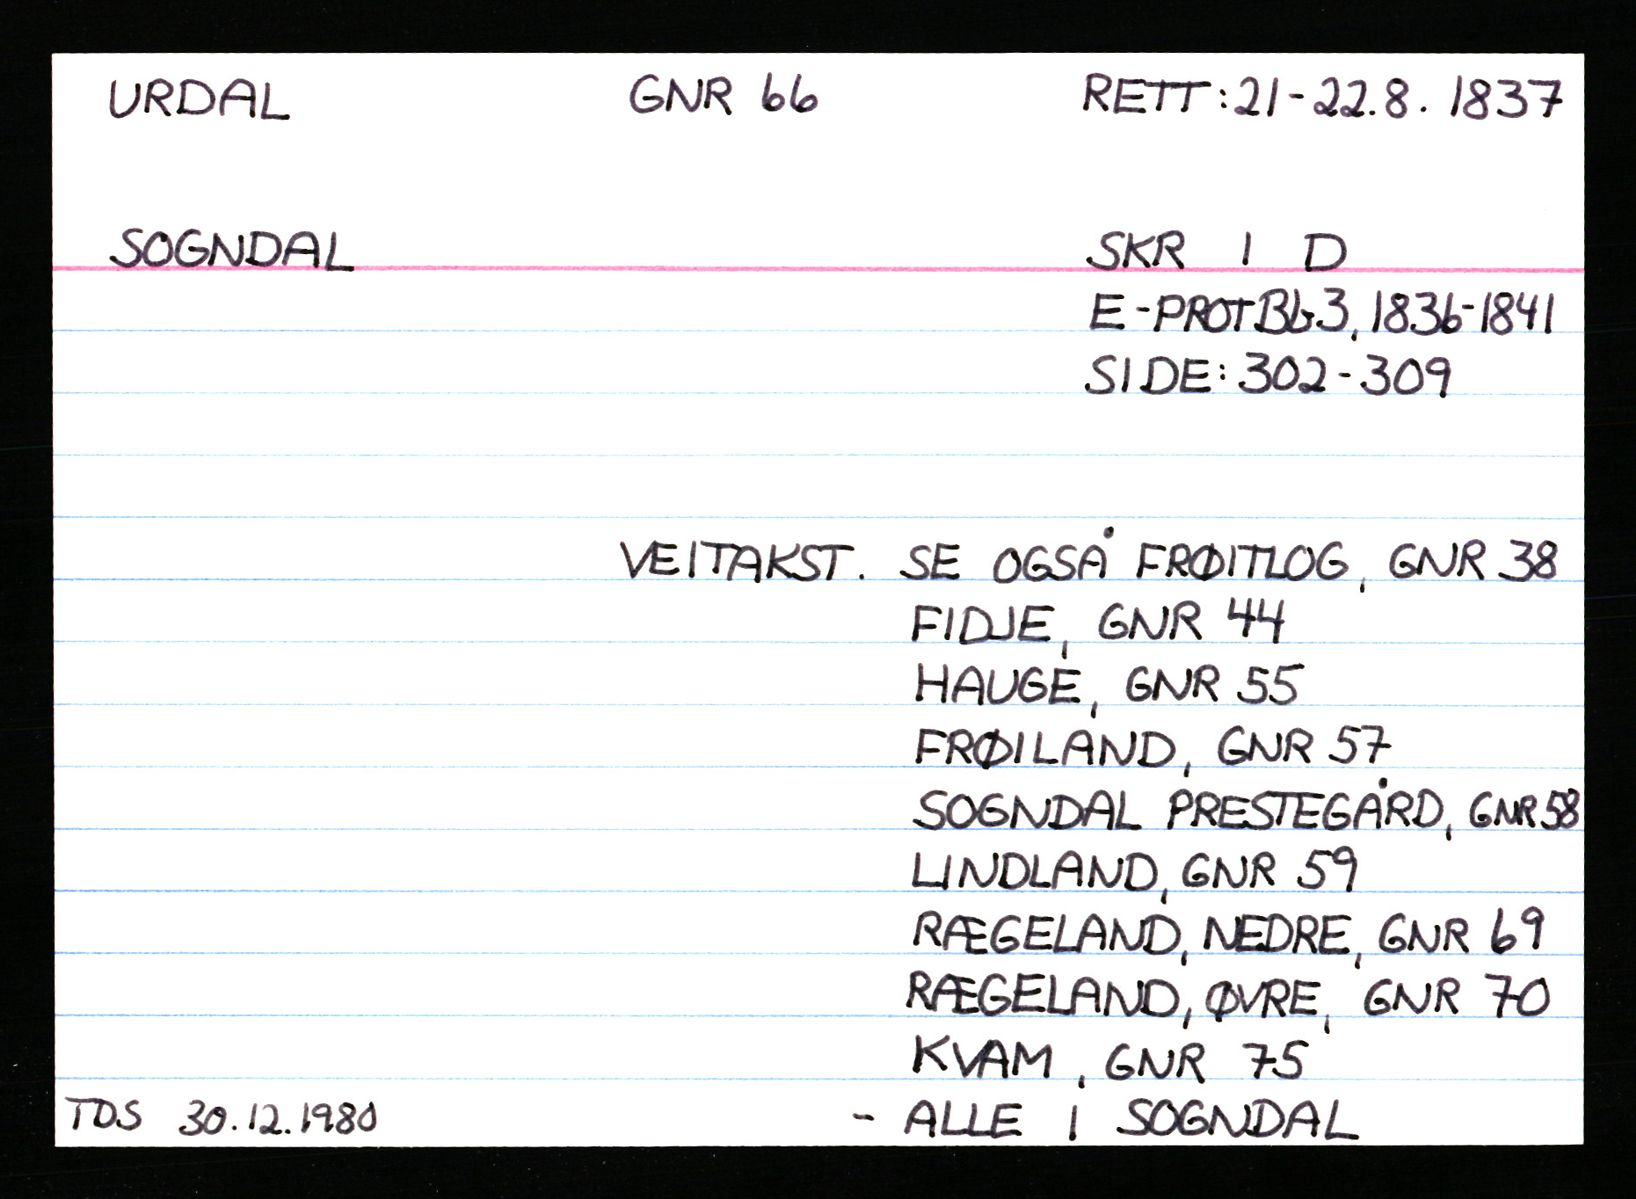 URDAL GNR 66 RETT: 21-22.8. 1837
SOGNDAL SKR I D
E-PROT BL 3, 1836-1841
SIDE: 302-309
VEITAKST. SE OGSÅ FRØITLOG, GNR 38
FIDJE, GNR 44
HAUGE, GNR 55
FRØILAND, GNR 57
SOGNDAL PRESTEGÅRD, GNR 58
LINDLAND, GNR 59
RÆGELAND, NEDRE, GNR 69
RÆGELAND, ØVRE, GNR 70
KVAM, GNR 75
TDS 30.12.1980 - ALLE I SOGNDAL